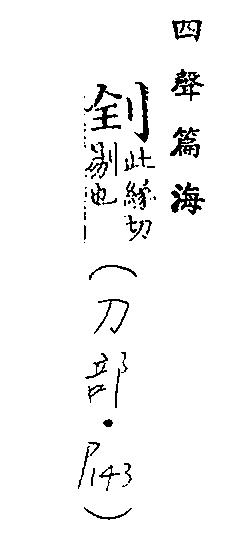 四聲篇海
㓌此緣切
剔也
(刀部·P143)